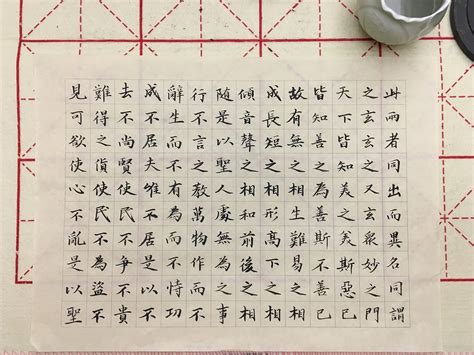 此兩者同出而異名同謂
之玄玄之又玄眾妙之門
天下皆知美之美斯惡已
皆知善之為善斯不善已
故有無之相生難易之相
成長短之相形高下之相
傾音聲之相和前後之相
隨是以聖人處無為之事
行不言之教萬物作而不
辭生而不有為而不恃功
成不居夫唯不居是以不
去不尚賢使民不爭不貴
難得之貨使民不為盜不
見可欲使心不亂是以聖